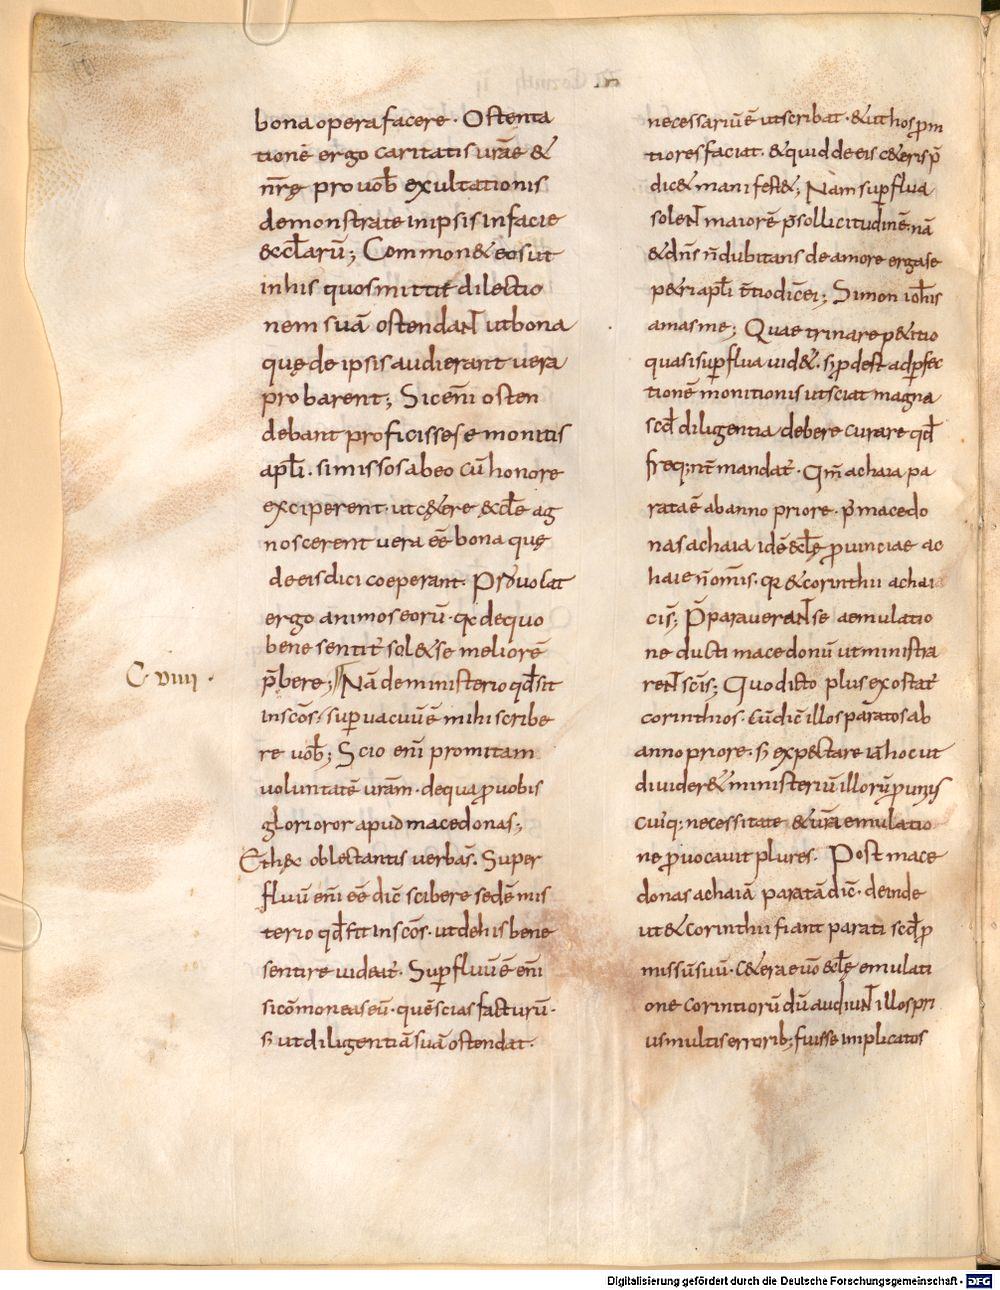 bona opera facere · Ostenta
tionē ergo caritatis urāe &
nr̄ę pro uob̄ exultationis
demonstrate in ipsis in facie
&ccl̄arū; Common& eos ut
in his quos mittit dilectio
nem suā ostendaNT ut bona
quę de ipsis audierant uera
probarent; Sic enī osten
debant proficisse se monitis
apl̄i · si missos ab eo cū honore
exciperent · ut c&ere &ccl̄e ag
noscerent uera eē bona quę
de eis dici coeperant · Puolat
ergo animos eorū · qa de quo
bene sentit sol& se meliorē
p̄bere; Nā de ministerio qd̄ fit
C · viiii ·
in scōs · supuacuū ē mihi scribe
re uob̄; Scio enī promtam
uoluntatē urām · de qua p uobis
glorioror apud macedonas;
Et hęc oblectantis uerba s̄. Super
fluū enī eē dic̄ scibere se de mis
terio qd̄ fit in scōs · ut de his bene
sentire uideat · Supfluū ē enī
si cōmoneas eū · quē scias facturū ·
s; ut diligentiā suā ostendat ·
necessariū ē ut scribat · & ut hos pm
tiores faciat · & quid de eis c&eris p̄
dic& manifest&; Nam supflua
soleNT maiorē p̄ sollicitudinē · nā
& dn̄s n̄ dubitans de amore erga se
p&ri apl̄i t̄tio dic̄ ei; Simon ioh̄is
amas me; Quae trina rep&itio
quasi supflua uid& · s; pdest ad pfec
tionē monitionis ut sciat magna
scd̄ diligentia debere curare qd̄
freq;nt̄ mandat · Qm̄ achaia pa
rata ē ab anno priore · p̄ macedo
nas achaia idē &ccl̄ę puinciae ac
haie n̄ om̄is · qa & corinthii achai
ci s̄; P̄paraueraNT se aemulatio
ne ducti macedonū ut ministra
reNT sc̄is; Quo dicto plus exostat
corinthios · cū dic̄ illos paratos ab
anno priore · s; expectare iā hoc ut
diuider& ministeriū illorū p unius
cuiq; necessitate & ura emulatio
ne puocauit plures · Post mace
donas achaiā paratā dic̄ · deinde
ut & corinthii fiant parati scd̄ p
missū suū · c&erae uō &ccl̄ę emulati
one corintiorū dū audiuNT illos pri
us multis errorib; fuisse implicatos
Digitalisierung gefördert durch die Deutsche Forschungsgemeinschaft - DFG